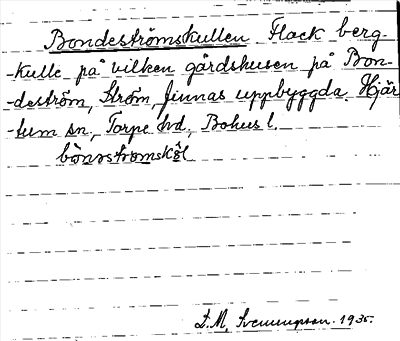 Bondeströmskullen Flack berg-
-kulle på vilken gårdshusen på Bon-
-deström, Ström, finnas uppbyggda. Hjär
-tum sn, Torpe hd, Bohus l.
S. M. Svenungson. 1935.